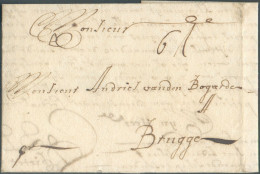 Monsieur
Monsieur Andriel vanden Bogarde
Brugge